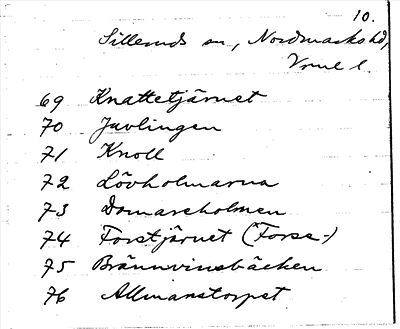 10.
Silleruds sn, Nordmarks hd,
Vrml l.
69 Knattetjärnet
70 Javlingen
71 Knoll
72 Lövholmarna
73 Domareholmen
74 Forstjärnet (Forse-)
75 Brännvinsbäcken
76 Allmanstorpet